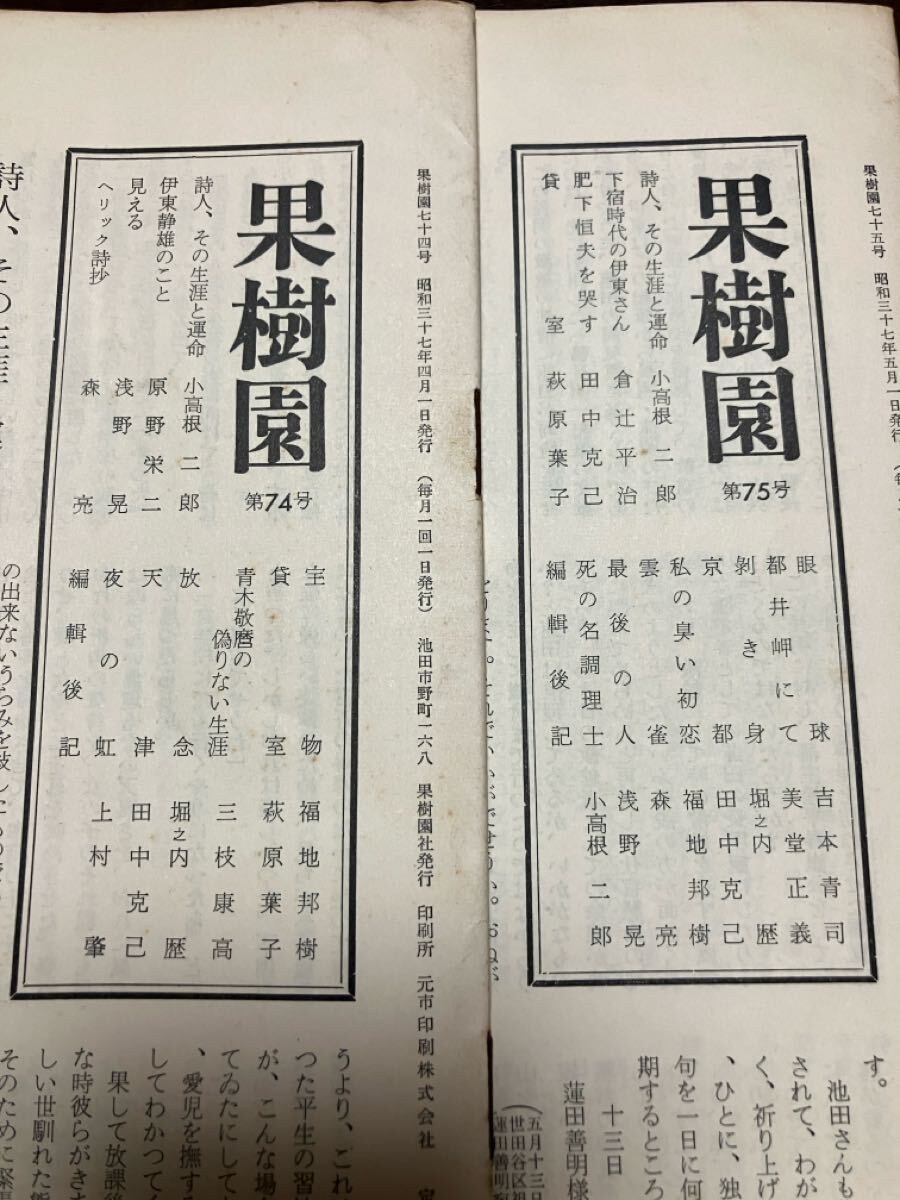 果樹園七十五号 昭和三十七年五月一日発行
果樹園
第75号
詩人、その生涯と運命 小高根二郎
下宿時代の伊東さん 倉辻平治
肥下恒夫を哭す 田中克己
貸室 萩原葉子
眼球 吉本青司
都井岬にて 美堂正義
剝き身 堀之内歴
京都 田中克己
私の臭い初恋 福地邦樹
雲雀 森亮
最後の人 浅野晃
死の名調理士 小高根二郎
編輯後記
す。
池田さんも
されて、わが
く、祈り上げ
、ひとに、独
句を一日に何
期するところ
十三日
蓮田善明様
果樹園七十四号 昭和三十七年四月一日発行 (毎月一回一日発行) 池田市野町一六八 果樹園社発行 印刷所 元市印刷株式会社
果樹園
第74号
詩人、その生涯と運命 小高根二郎
伊東静雄のこと 原野栄二
見える 浅野晃
ヘリック詩抄 森亮
宝物 福地邦樹
貸室 萩原葉子
青木敬麿の偽りない生涯 三枝康高
放念 堀之内歴
天津 田中克己
夜の虹 上村肇
編輯後記
うより、これ
つた平生の習
が、こんな場
てゐたにしても
、愛児を撫する
してわかつてく
果して放課後
な時彼らがきま
しい世馴れた態
そのために緊張
の出来ないうらみを